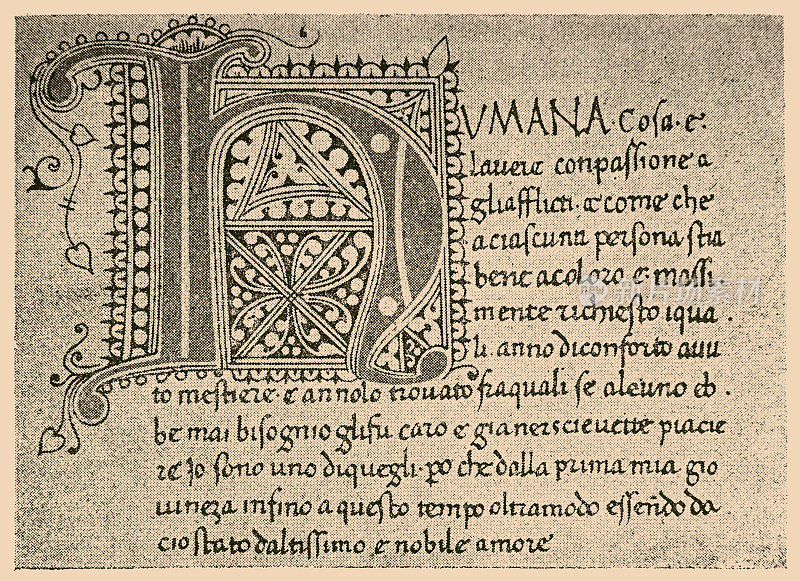 HUMANA·Cosa·e·
lauere conpassione a
gliafflicti·⁊ come che
aciascuna persona stia
bene acoloro e·massi
mente richiesto iqua.
li·anno diconforto auu
to mestiere·e annolo trouato fraquali se alcuno eb.
be mai bisognio glifu caro e gianericieuette piacie
re Io sono uno diquegli·po che dalla prima mia gio
uineza infino a questo tempo oltramodo essendo da
ciostato daltissimo e nobile amore
新片场素材